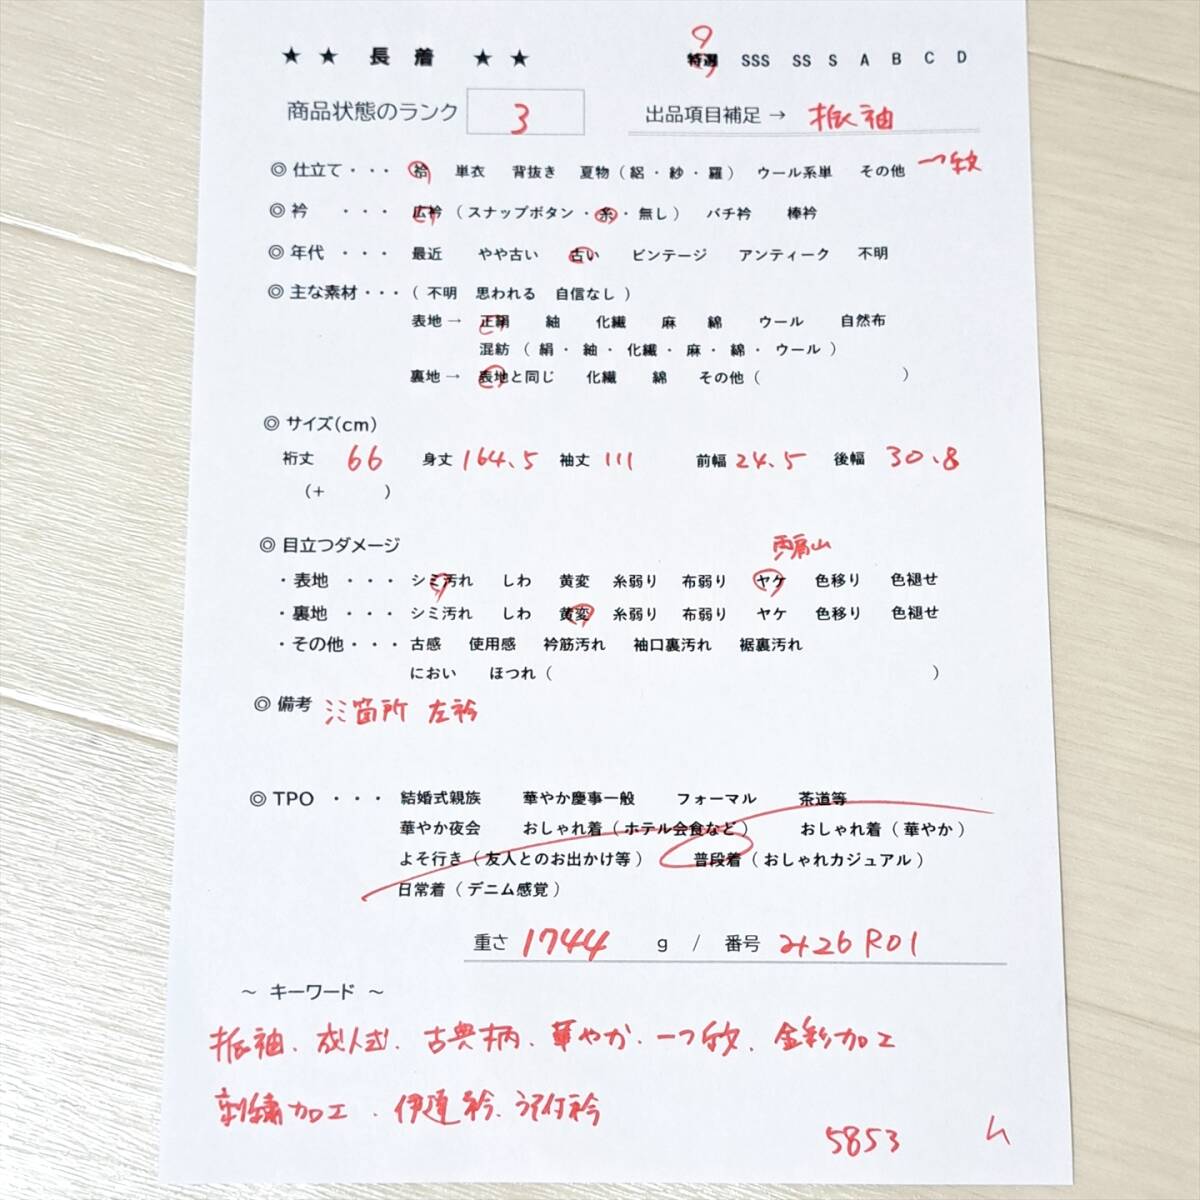 ★ ★ 長 着 ★ ★ 特選 SSS SS S A B C D
商品状態のランク 3 出品項目補足 → 振袖
◎ 仕立て ・・・ 袷 単衣 背抜き 夏物 ( 絽 ・ 紗 ・ 羅 ) ウール系単 その他 一つ紋
◎ 衿 ・・・ 広衿 ( スナップボタン ・ 糸 ・ 無し ) バチ衿 棒衿
◎ 年代 ・・・ 最近 やや古い 古い ビンテージ アンティーク 不明
◎ 主な素材 ・・・ ( 不明 思われる 自信なし )
表地 → 正絹 紬 化繊 麻 綿 ウール 自然布
混紡 ( 絹 ・ 紬 ・ 化繊 ・ 麻 ・ 綿 ・ ウール )
裏地 → 表地と同じ 化繊 綿 その他 ( )
◎ サイズ(cm)
裄丈 66 身丈 164.5 袖丈 111 前幅 24.5 後幅 30.8
(+ )
◎ 目立つダメージ 両肩山
・ 表地 ・・・ シミ汚れ しわ 黄変 糸弱り 布弱り ヤケ 色移り 色褪せ
・ 裏地 ・・・ シミ汚れ しわ 黄変 糸弱り 布弱り ヤケ 色移り 色褪せ
・ その他 ・・・ 古感 使用感 衿筋汚れ 袖口裏汚れ 裾裏汚れ
におい ほつれ ( )
◎ 備考 シミ箇所 左衿
◎ TPO ・・・ 結婚式親族 華やか慶事一般 フォーマル 茶道等
華やか夜会 おしゃれ着 ( ホテル会食など ) おしゃれ着 ( 華やか )
よそ行き ( 友人とのお出かけ等 ) 普段着 ( おしゃれカジュアル )
日常着 ( デニム感覚 )
重さ 1744 g / 番号 み26R01
～ キーワード ～
振袖、成人式、古典柄、華やか、一つ紋、金彩加工
刺繍加工、伊達衿、衿
5853